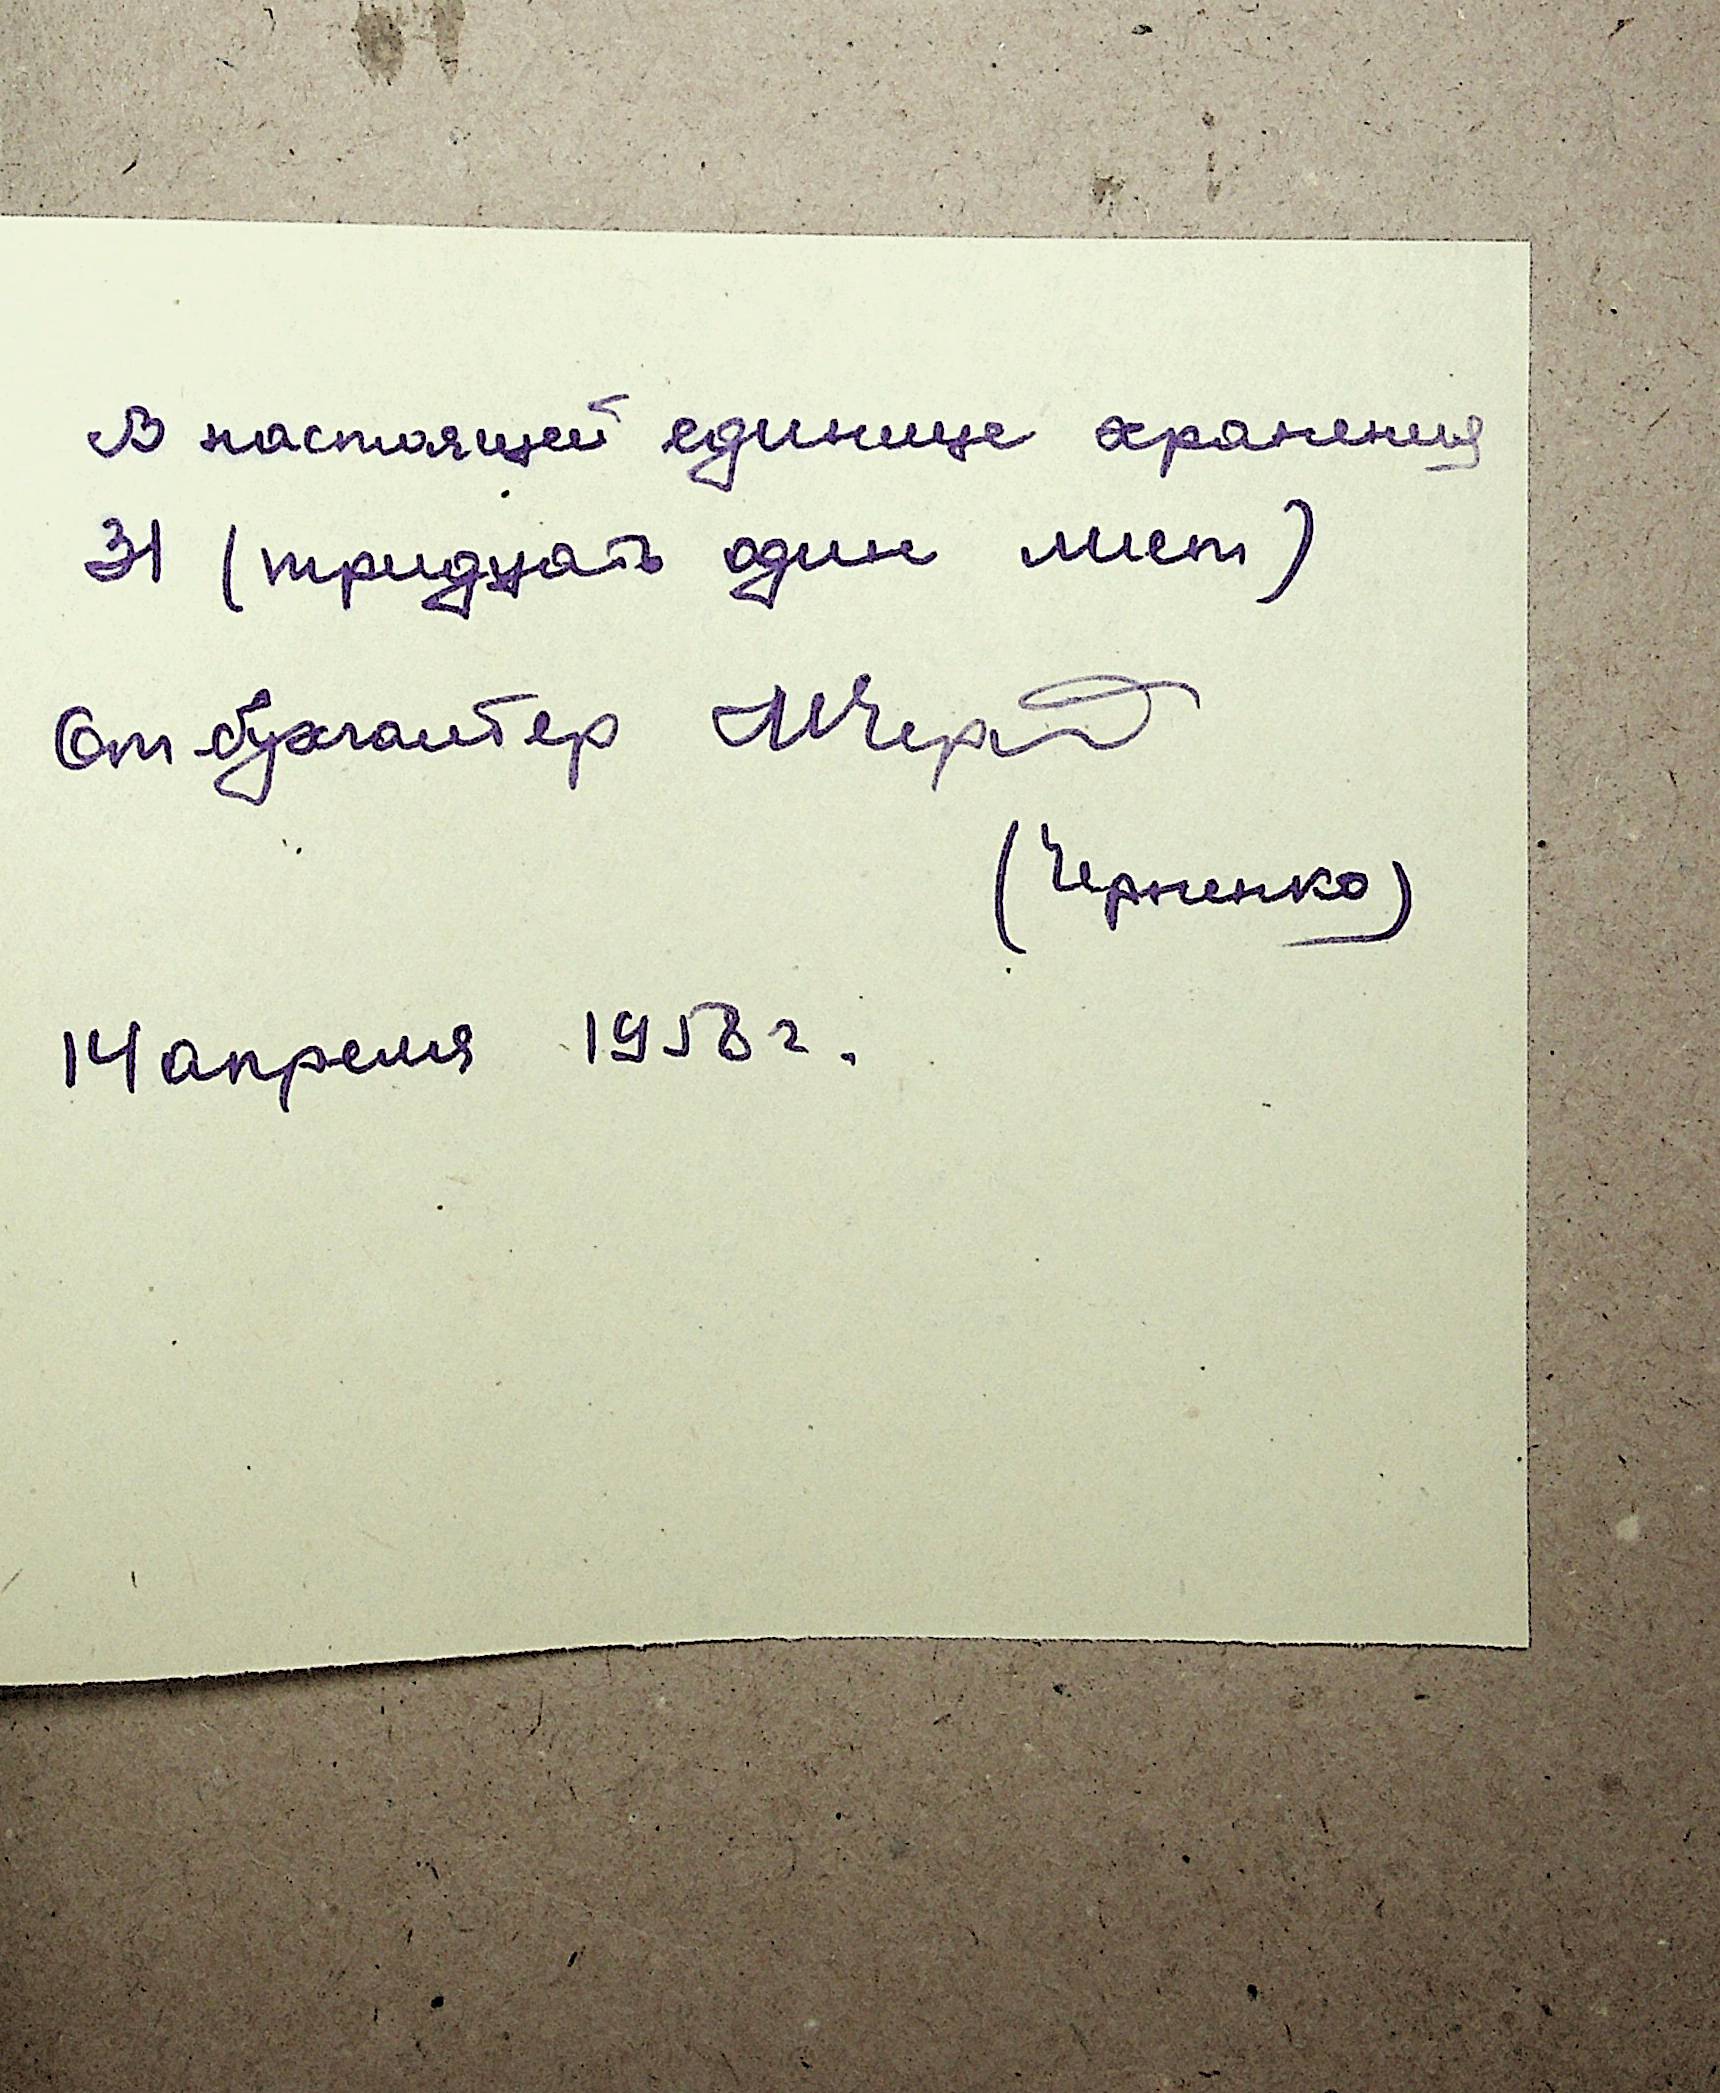 В настоящей единице хранения
31 (тридцать один лист)
Ст бухгалтер
(Черненко)
14 апреля 1958 г.